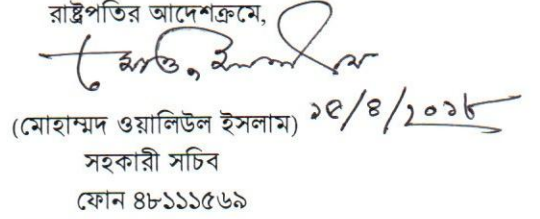 রাষ্ট্রপতির আদেশক্রমে,
(মোহাম্মদ ওয়ালিউল ইসলাম) ২৫/৪/২০১৮
সহকারী সচিব
ফোন ৪৮১১১৫৬৯